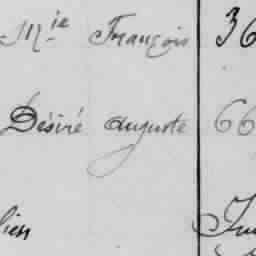 Mie François 36
Désiré Auguste 66
lien